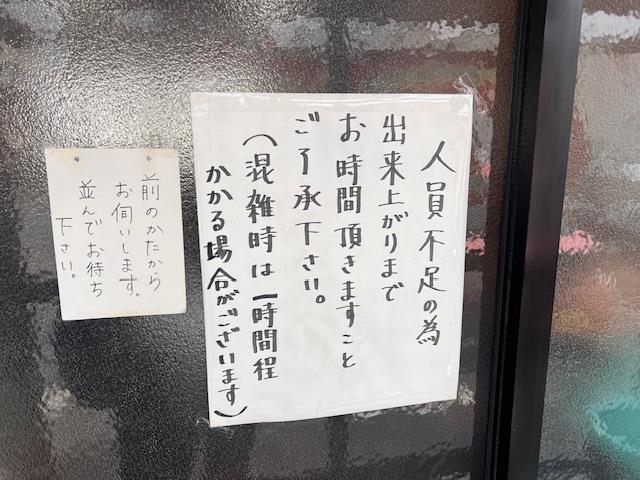 人員不足の為
出来上がりまで
お時間頂きますこと
ご了承下さい。
（混雑時は一時間程
かかる場合がございます）
前のかたから
お伺いします。
並んでお待ち
下さい。